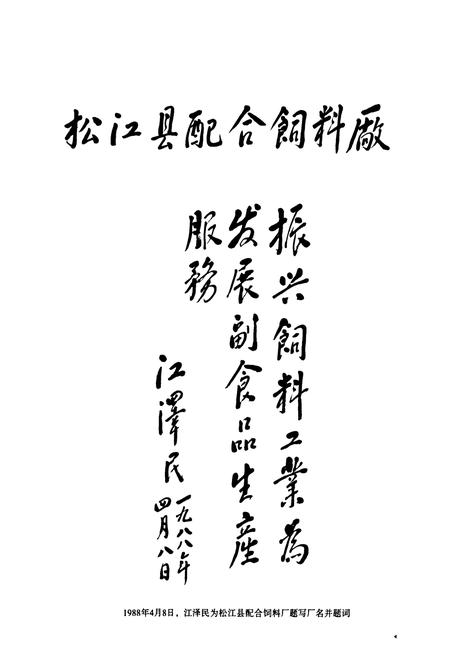 松江县配合飼料廠
振兴飼料工業為
发展副食品生產
服務
江澤民
一九八八年
四月八日
1988年4月8日，江泽民为松江县配合饲料厂题写厂名并题词